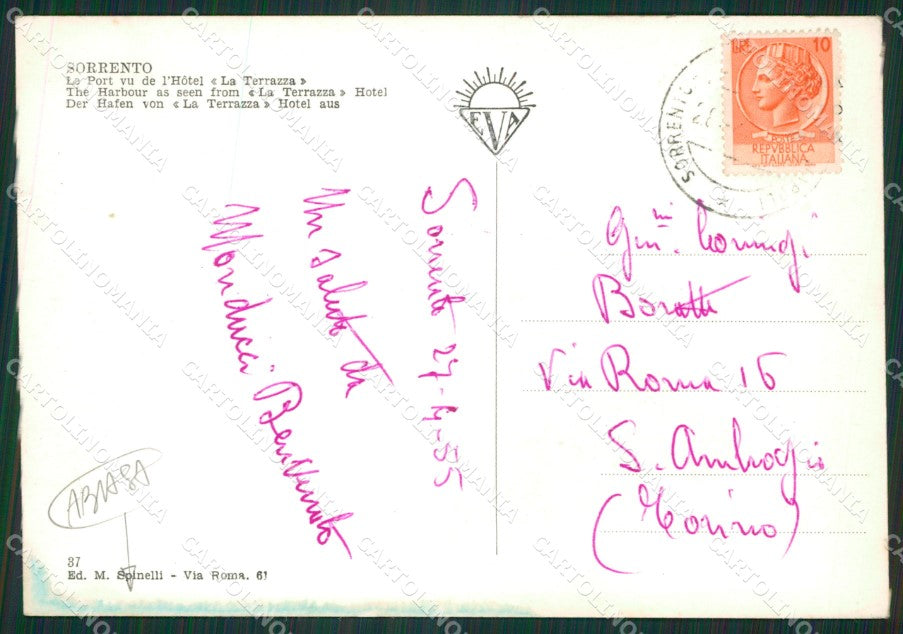 SORRENTO
Le Port vu de l'Hôtel « La Terrazza »
The Harbour as seen from « La Terrazza » Hotel
Der Hafen von « La Terrazza » Hotel aus
EVA
LIRE 10
POSTE
REPVBBLICA
ITALIANA
SORRENTO
Sorrento 27-4-55
Un saluto da
Monducci Benvenuto
Boratti
Via Roma 16
S. Ambrogio
(Torino)
ABRASA
37
Ed. M. Spinelli - Via Roma. 61
CARTOLINOMANIA